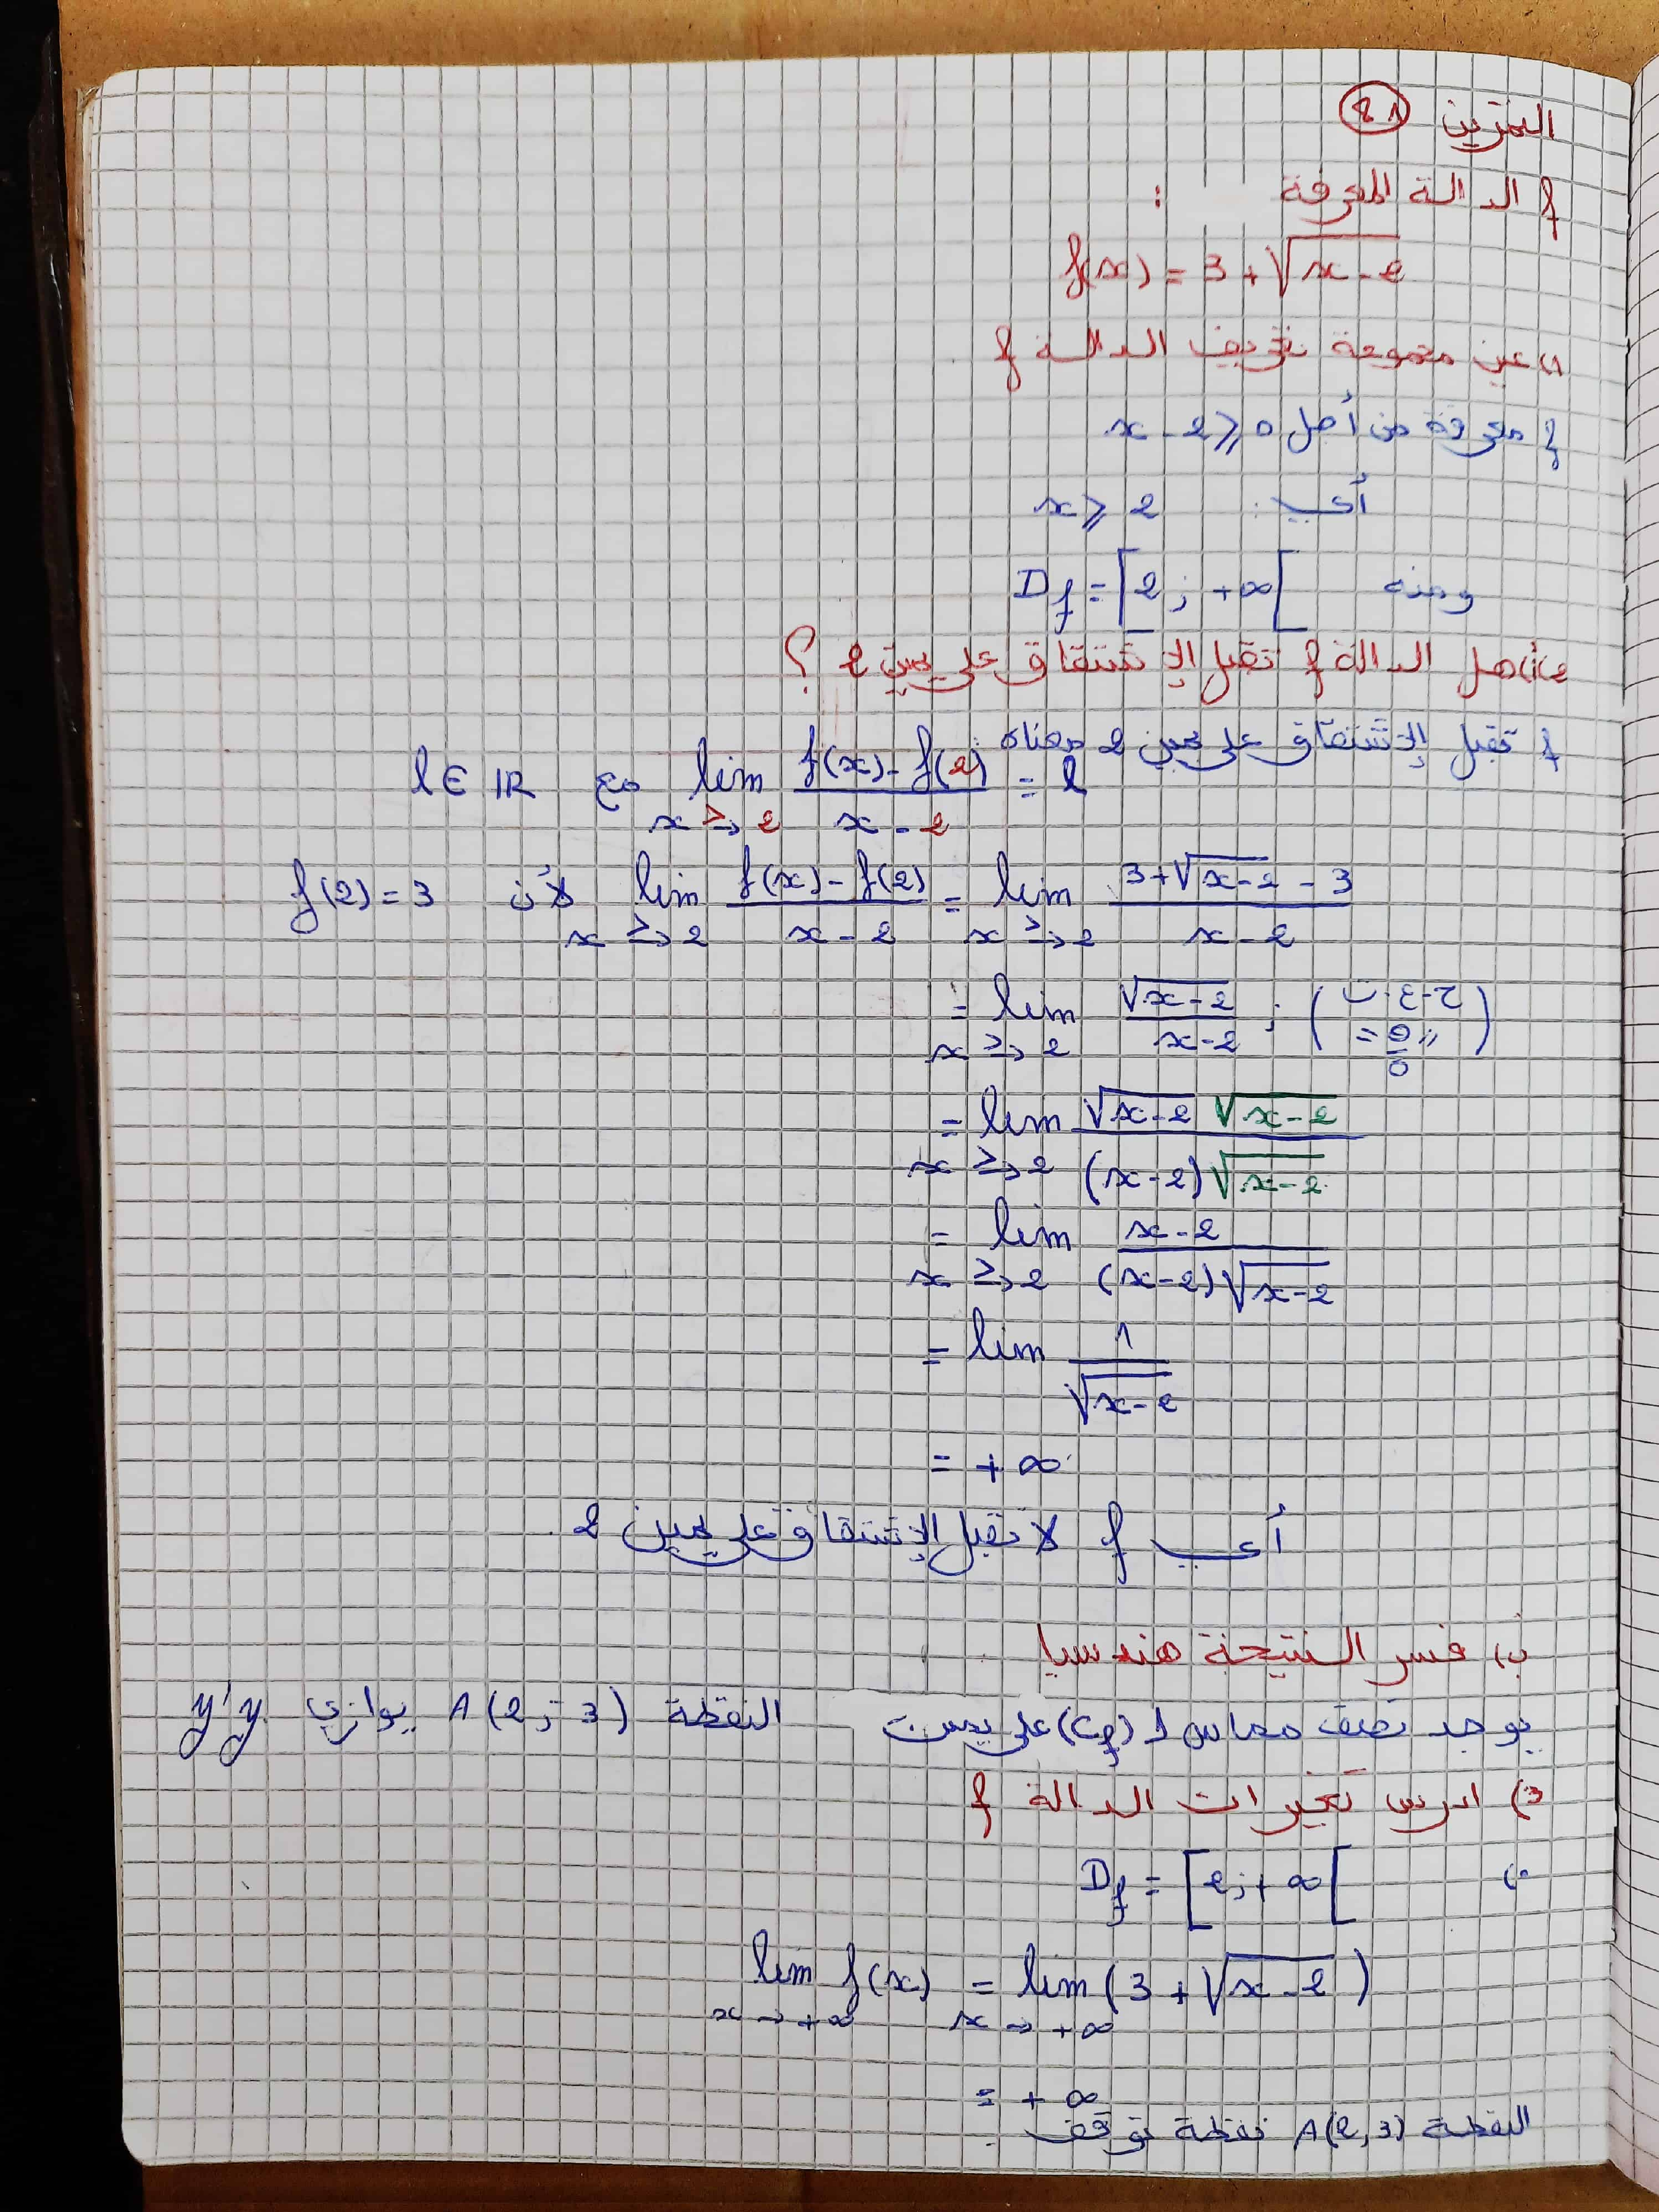 التمرين 18
f الدالة المعرفة :
f(x) = 3 + √(x-2)
1) عين مجموعة تعريف الدالة f
f معرفة من أجل x - 2 ⩾ 0
أي : x ⩾ 2
ومنه Df = [2 ; +∞[
2) أ) هل الدالة f تقبل الإشتقاق على يمين 2 ؟
f تقبل الإشتقاق على يمين 2 معناه :
lim x→^>2 (f(x) - f(2))/(x - 2) = l مع l ∈ IR
lim x→^>2 (f(x) - f(2))/(x - 2) = lim x→^>2 (3 + √(x-2) - 3)/(x - 2) لأن f(2) = 3
= lim x→^>2 √(x-2)/(x-2) ; (ح-ع-ت "0/0" =)
= lim x→^>2 (√(x-2) √(x-2))/((x-2)√(x-2))
= lim x→^>2 (x-2)/((x-2)√(x-2))
= lim 1/√(x-2)
= +∞
أي f لا تقبل الإشتقاق على يمين 2.
ب) فسر النتيجة هندسيا
يوجد نصف مماس لـ (Cf) على يمين النقطة A(2 ; 3) يوازي y'y
3) ادرس تغيرات الدالة f
Df = [2 ; +∞[
lim x→+∞ f(x) = lim x→+∞ (3 + √(x-2))
= +∞
النقطة A(2,3) نقطة توقف.